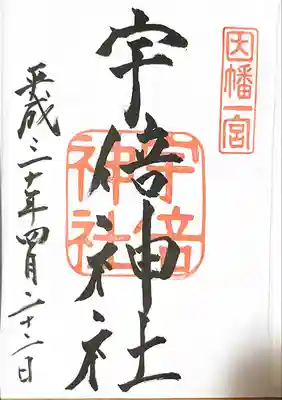 因幡一宮
宇倍神社
宇倍神社
平成三十年四月二十二日